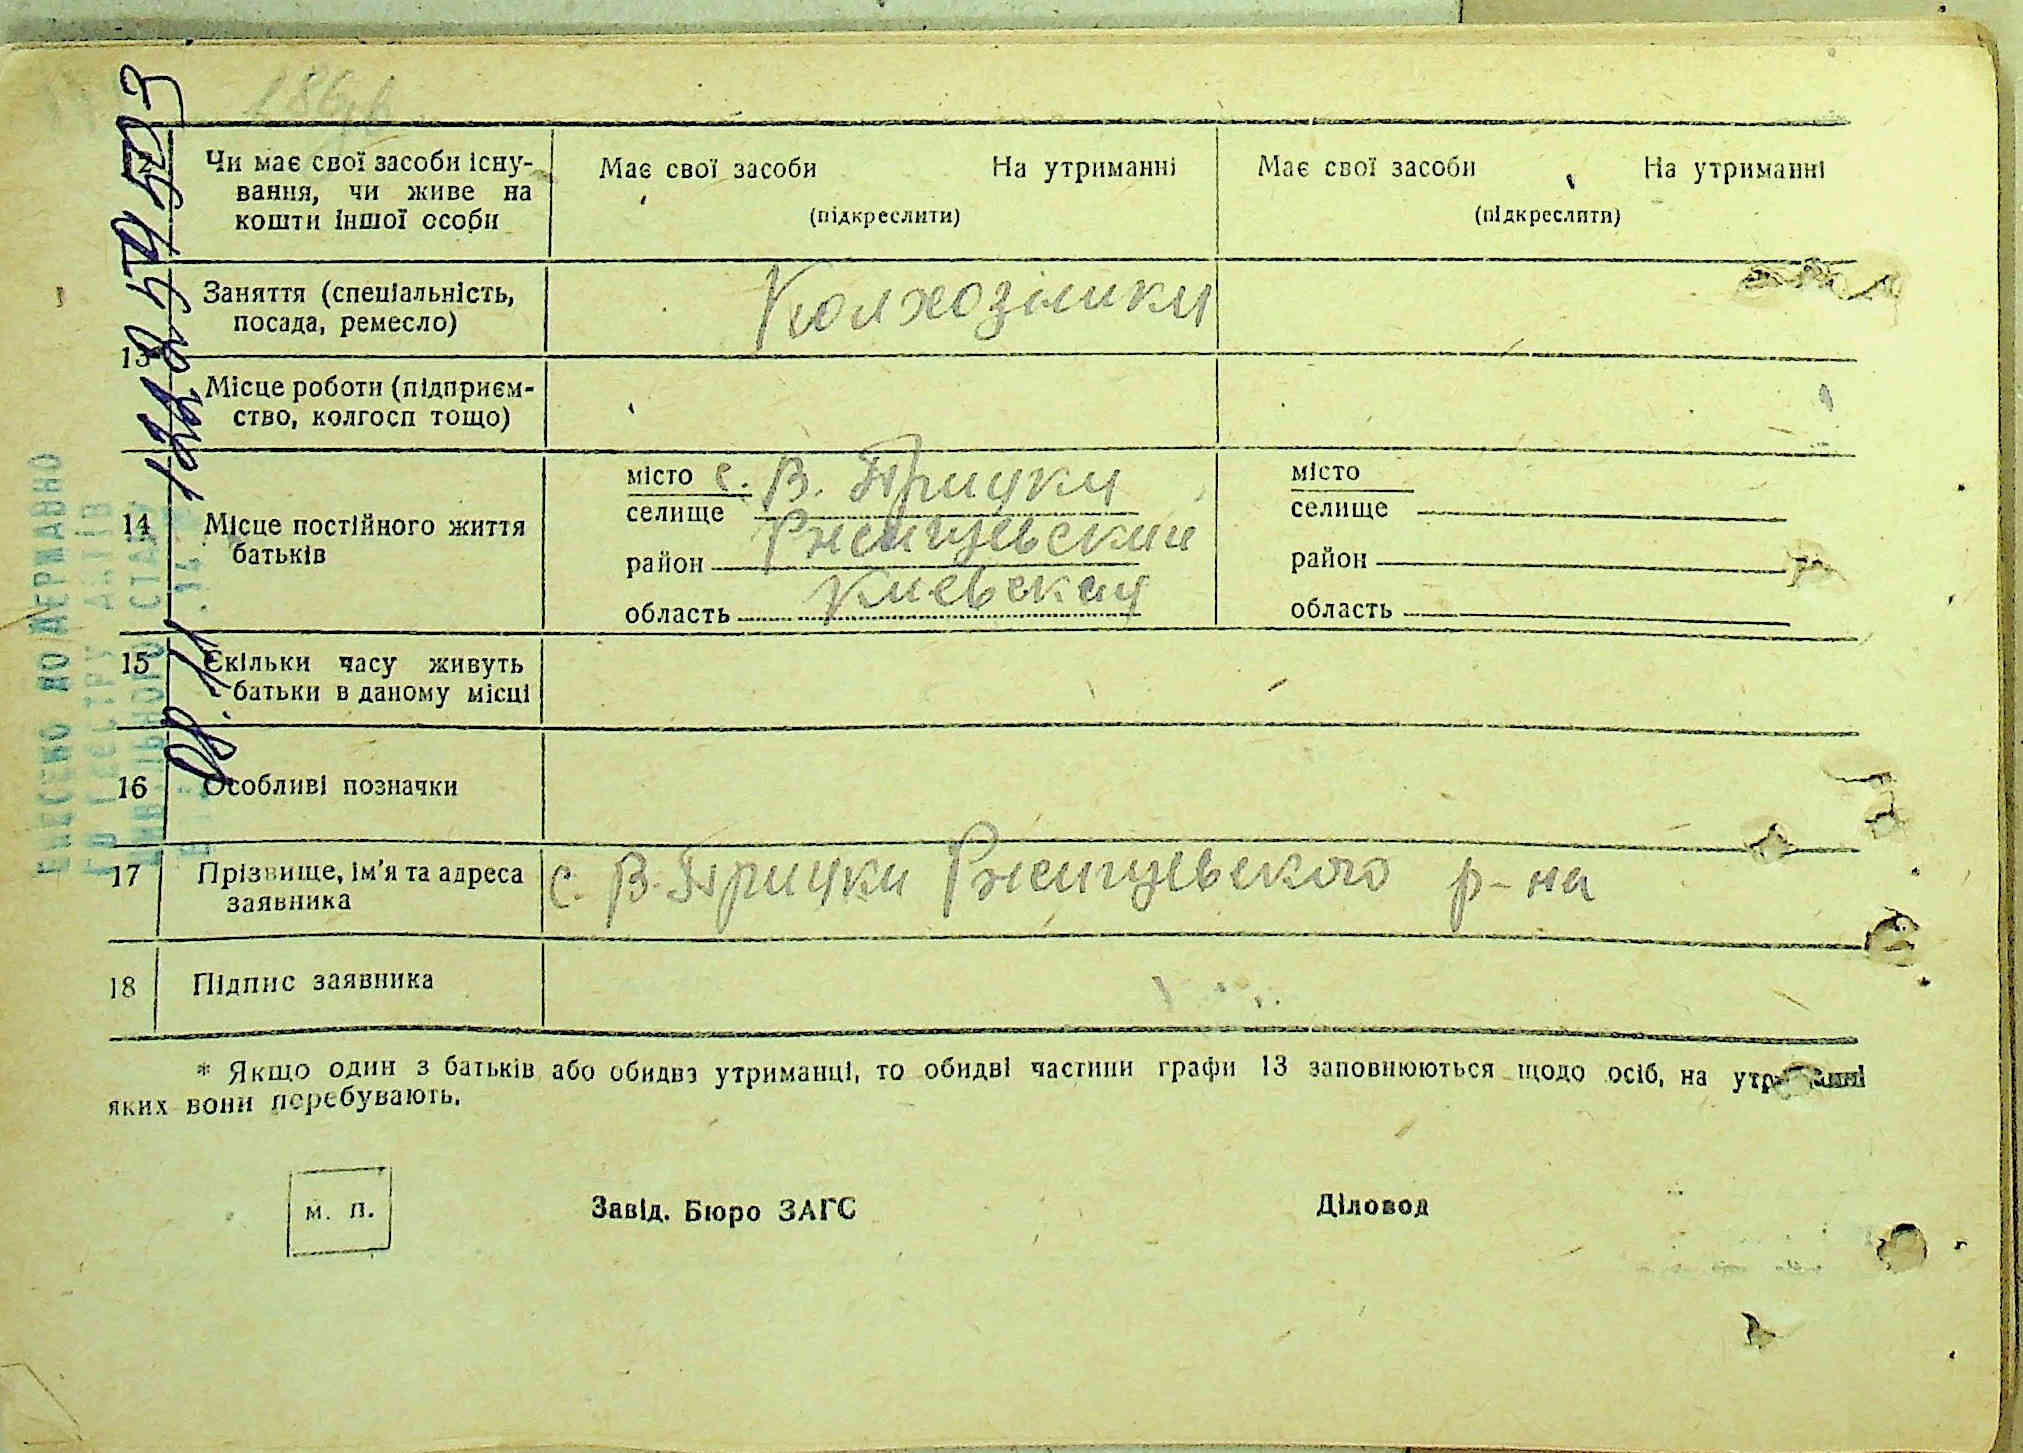 Чи має свої засоби існу-
вання, чи живе на
кошти іншої особи
Має свої засоби На утриманні
(підкреслити)
Має свої засоби На утриманні
(підкреслити)
13
Заняття (спеціальність,
посада, ремесло)
Колхозники
Місце роботи (підприєм-
ство, колгосп тощо)
14
Місце постійного життя
батьків
місто с. В. Прицки
селище
район Ржищевский
область Киевская
місто
селище
район
область
15
Скільки часу живуть
батьки в даному місці
16
Особливі позначки
17
Прізвище, ім'я та адреса
заявника
с. В. Прицки Ржищевского р-на
18
Підпис заявника
* Якщо один з батьків або обидва утриманці, то обидві частини графи 13 заповнюються щодо осіб, на утриманні
яких вони перебувають.
м. п.
Завід. Бюро ЗАГС
Діловод
ВНЕСЕНО ДО ДЕРЖАВНО
ГО РЕЄСТРУ АКТІВ